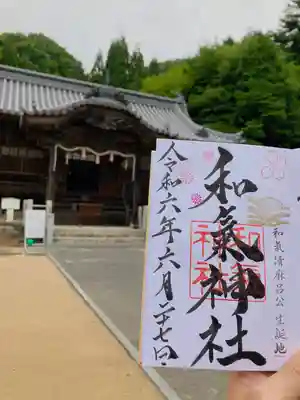 和氣清麻呂公生誕地
和氣神社
令和六年六月二十七日